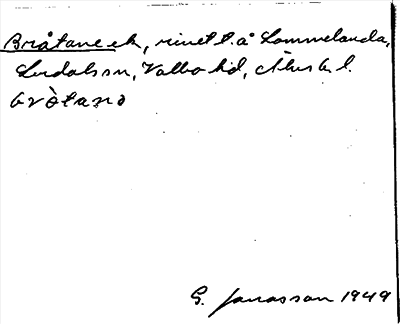 Bråtane ek, rinet t. å Lommelanda,
Lerdals sn, Valbo hd, Älvsb l.
bròtanə
G. Jonasson 1949